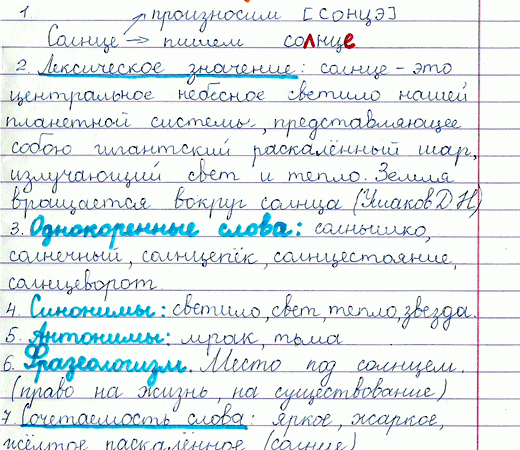 1. произносим [СОНЦЭ]
Солнце → пишем солнце
2. Лексическое значение: солнце - это
центральное небесное светило нашей
планетной системы, представляющее
собою гигантский раскалённый шар,
излучающий свет и тепло. Земля
вращается вокруг солнца (Ушаков Д Н)
3. Однокоренные слова: солнышко,
солнечный, солнцепёк, солнцестояние,
солнцеворот.
4. Синонимы: светило, свет, тепло, звезда.
5. Антонимы: мрак, тьма
6. Фразеологизм. Место под солнцем.
(право на жизнь, на существование)
7 Сочетаемость слова: яркое, жаркое,
жёлтое раскалённое (солнце)